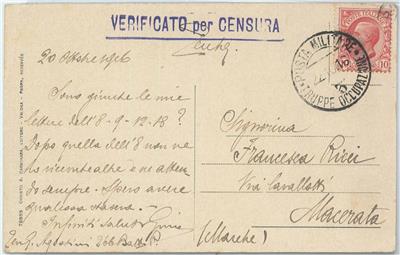 VERIFICATO per CENSURA
20 Ottobre 1916
Sono giunte le mie
lettere dell'8-9-12-13?
Dopo quella dell'8 non ne
ho ricevute altre e ne atten
do sempre. Spero avere
qualcosa stasera.
Infiniti saluti
Agostini
POSTA MILITARE
TRUPPE OCCUPAZ
POSTE ITALIANE
10
Signorina
Francesca Ricci
Via Cavallotti
Macerata
(Marche)